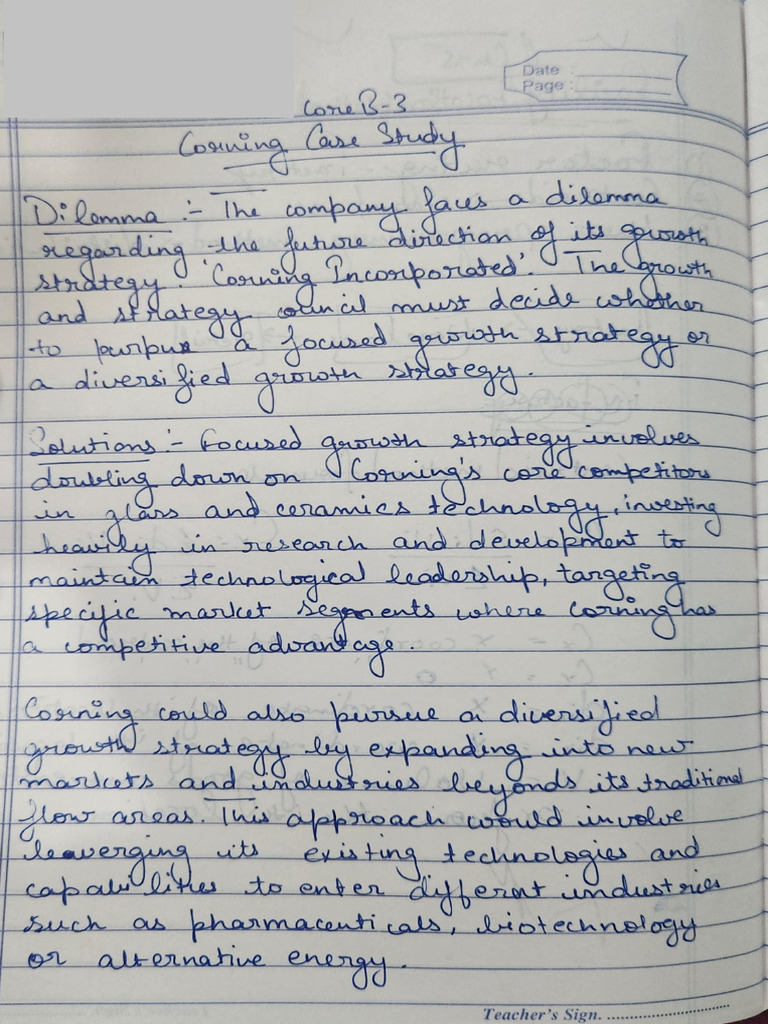 Date
Page
Core B-3
Corning Case Study
Dilemma :- The company faces a dilemma
regarding the future direction of its growth
strategy. 'Corning Incorporated'. The growth
and strategy council must decide whether
to purpus a focused growth strategy or
a diversified growth strategy.
Solutions :- Focused growth strategy involves
doubling down on Corning's core competitors
in glass and ceramics technology, investing
heavily in research and development to
maintain technological leadership, targeting
specific market segments where corning has
a competitive advantage.
Corning could also pursue a diversified
growth strategy by expanding into new
markets and industries beyonds its traditional
flow areas. This approach would involve
leaverging its existing technologies and
capabilities to enter different industries
such as pharmaceuticals, biotechnology
or alternative energy.
Teacher's Sign.